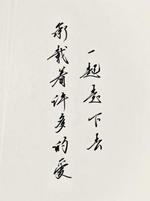 承载着许多的爱
一起走下去